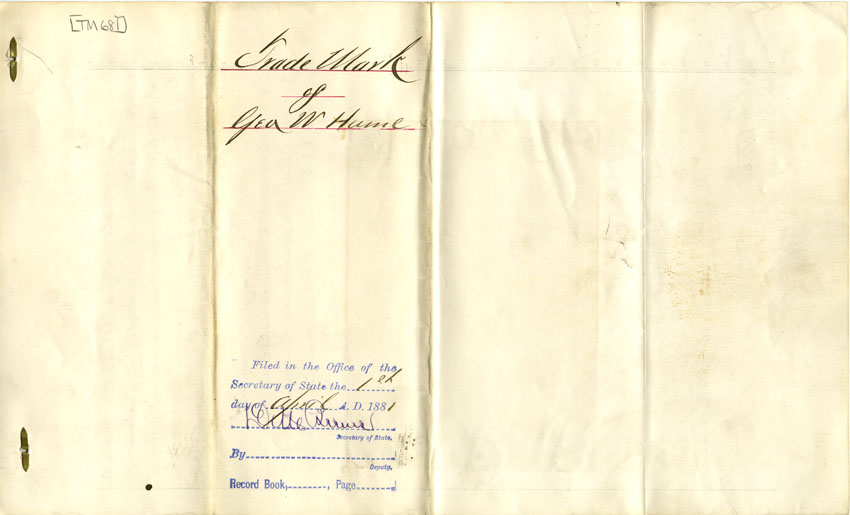 [TM681]
Trade Mark
of
Geo W Hume
Filed in the Office of the
Secretary of State the 1st
day of April A. D. 1881
Secretary of State.
By
Deputy.
Record Book, , Page